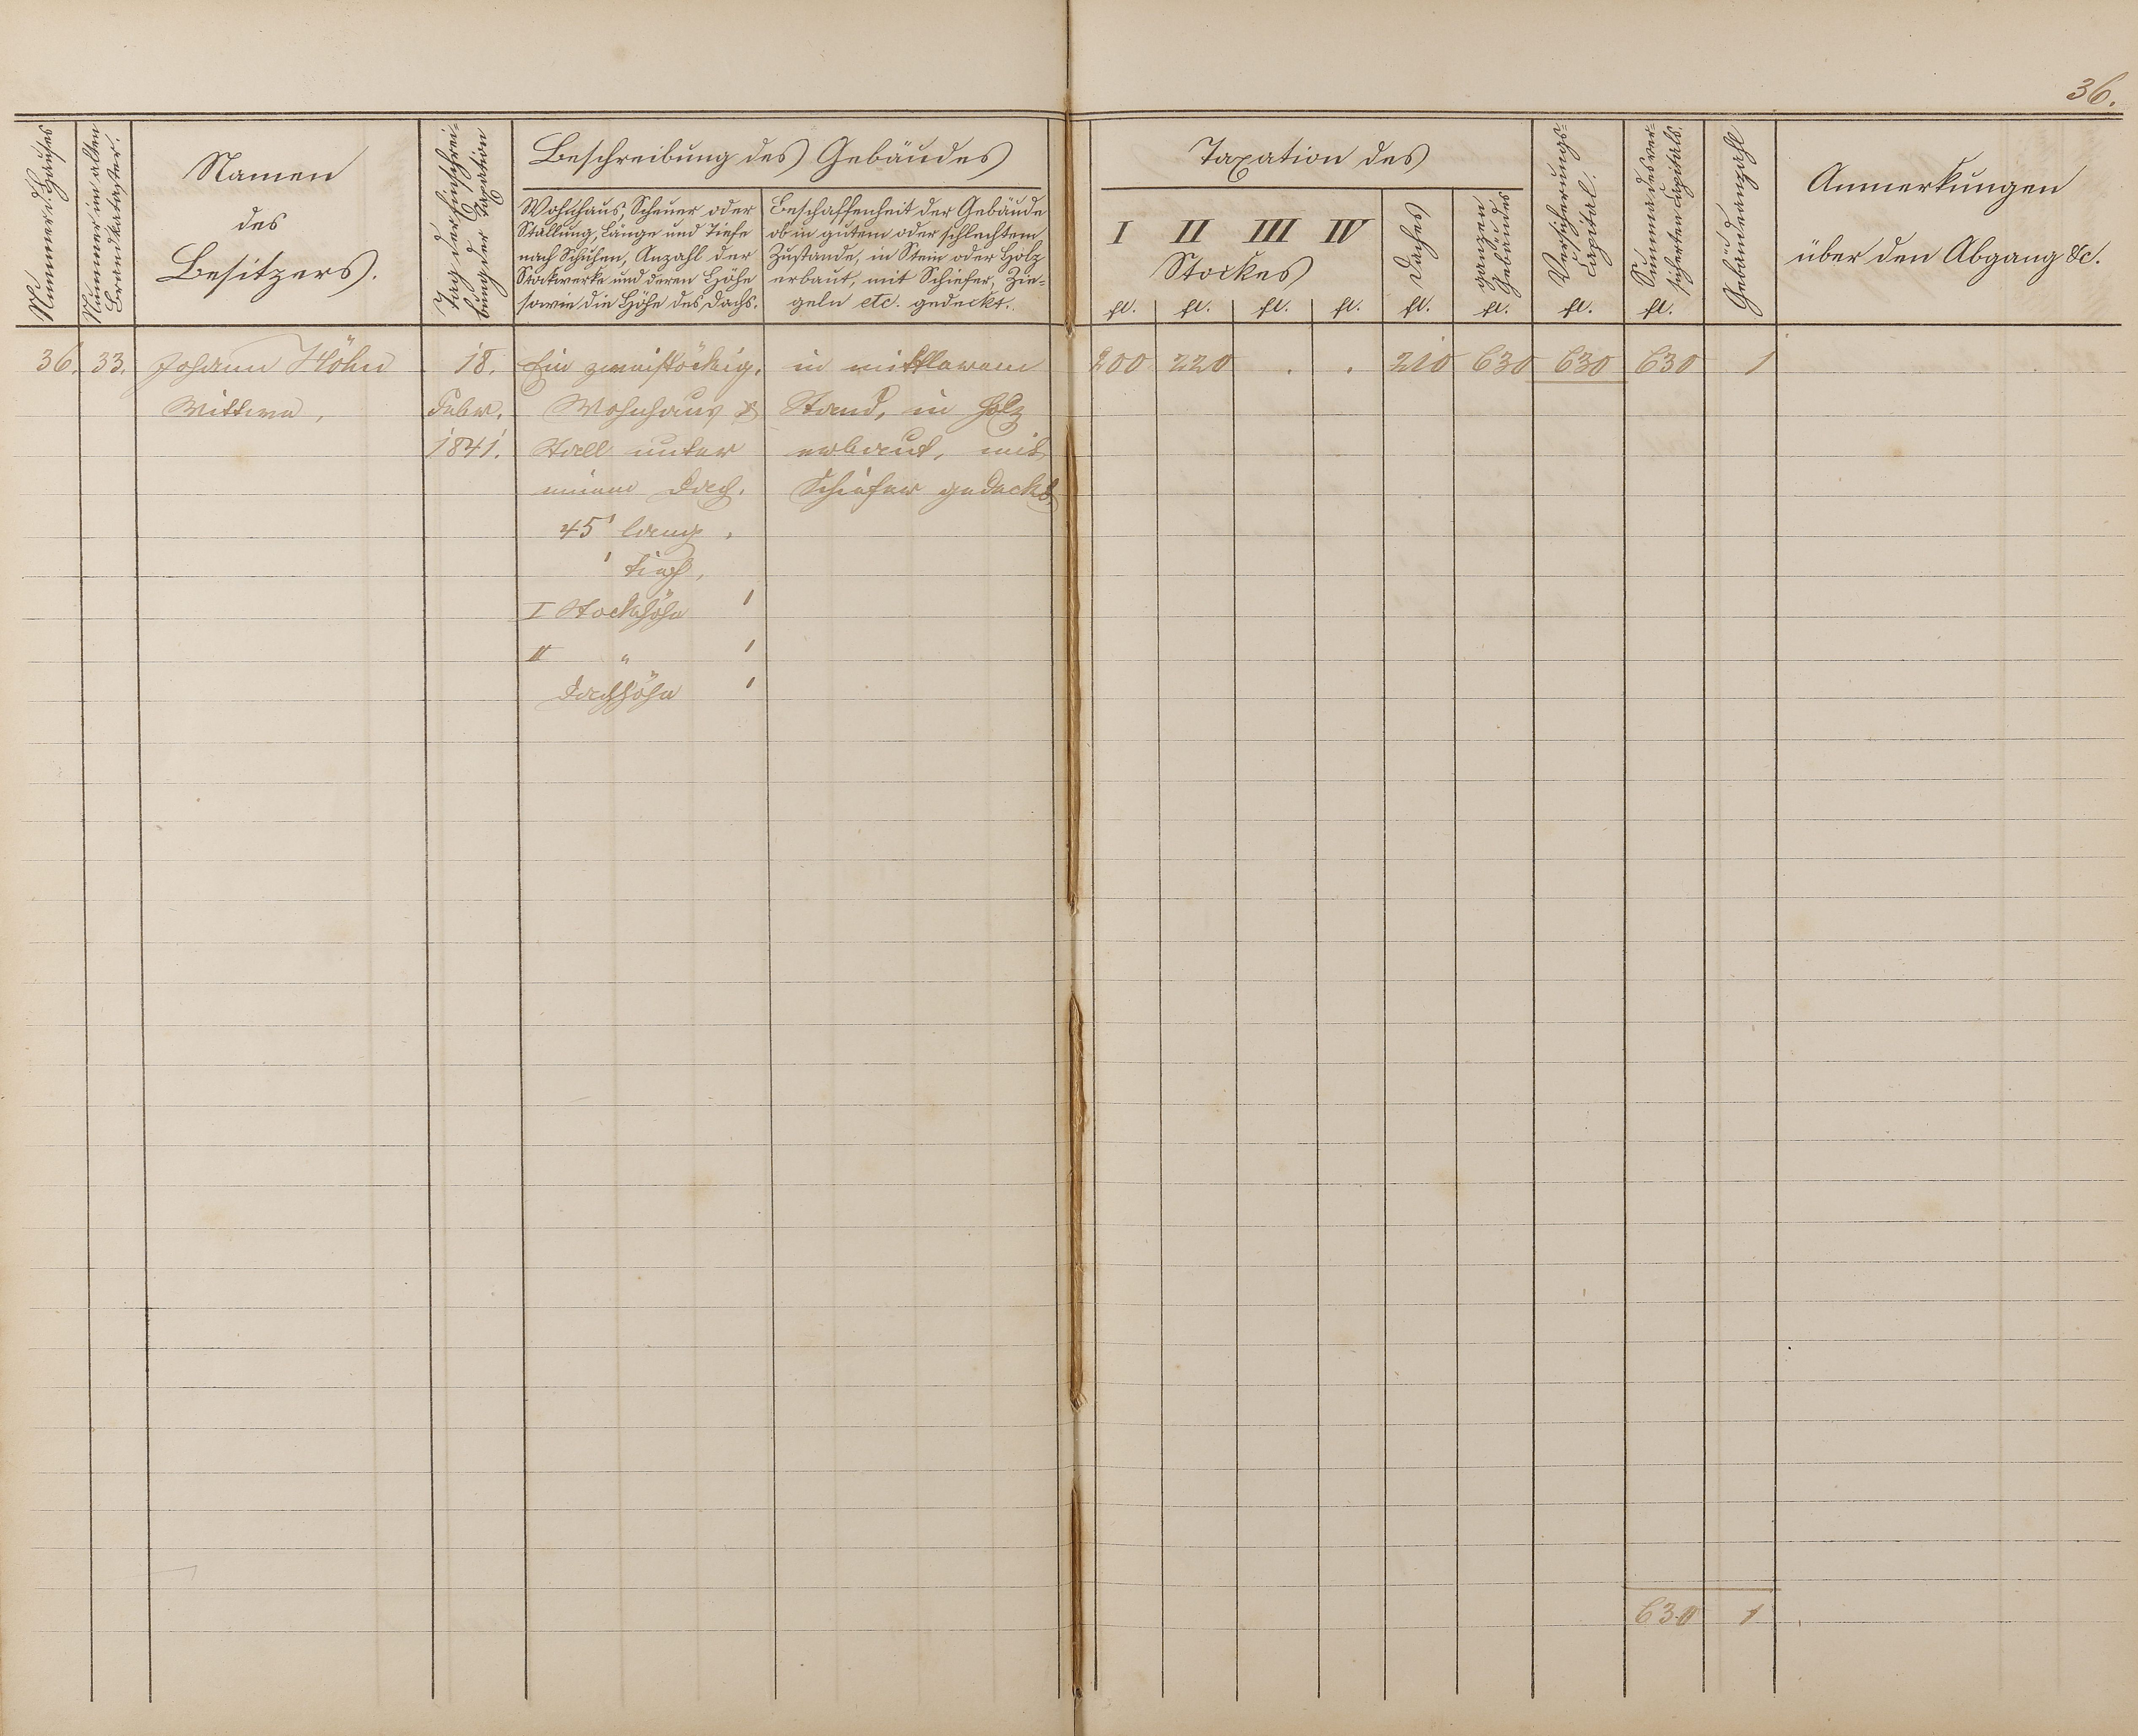 36.
Nummer d. Hauses
Nummer im alten
Brandkataster.
Namen
des
Besitzers.
Tag der Einschrei-
bung der Taxation
Beschreibung des Gebäudes
Wohnhaus, Scheuer oder
Stallung, Länge und Tiefe
nach Schuhen, Anzahl der
Stockwerke und deren Höhe
sowie die Höhe des Dachs.
Beschaffenheit der Gebäude
ob in gutem oder schlechtem
Zustande, in Stein oder Holz
erbaut, mit Schiefer, Zie-
geln etc. gedeckt.
Taxation des
I II III IV
Stockes
Daches
ganzen
Gebäudes
Versicherungs-
Capital.
Summa des ver-
sicherten Capitals.
Gebäudeanzahl
Anmerkungen
über den Abgang &c.
fl. fl. fl. fl. fl. fl. fl. fl.
36. 33. Johann Höhn 18. Ein zweistöckig. in mittlerem 200 220 . . 210 630 630 630 1
Wittwe, Febr. Wohnhaus & Stand, in Holz
1841. Stall unter erbaut, mit
einem Dach. Schiefer gedeckt.
45' lang,
' tief,
I Stockhöhe '
II " '
Dachhöhe '
630 1